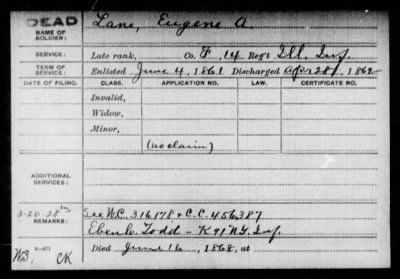 DEAD
NAME OF SOLDIER:
Lane, Eugene A.
SERVICE:
Late rank, Co. F, 14 Reg't Ill. Inf.
TERM OF SERVICE:
Enlisted June 4, 1861 Discharged Apr 28, 1862
DATE OF FILING. CLASS. APPLICATION NO. LAW. CERTIFICATE NO.
Invalid,
Widow,
Minor,
(no claim)
ADDITIONAL SERVICES:
3-20-28 See W.C. 316178 & C.C. 456387
REMARKS:
Eben C. Todd - K 91 N.Y. Inf.
Died June 16, 1868, at
CK